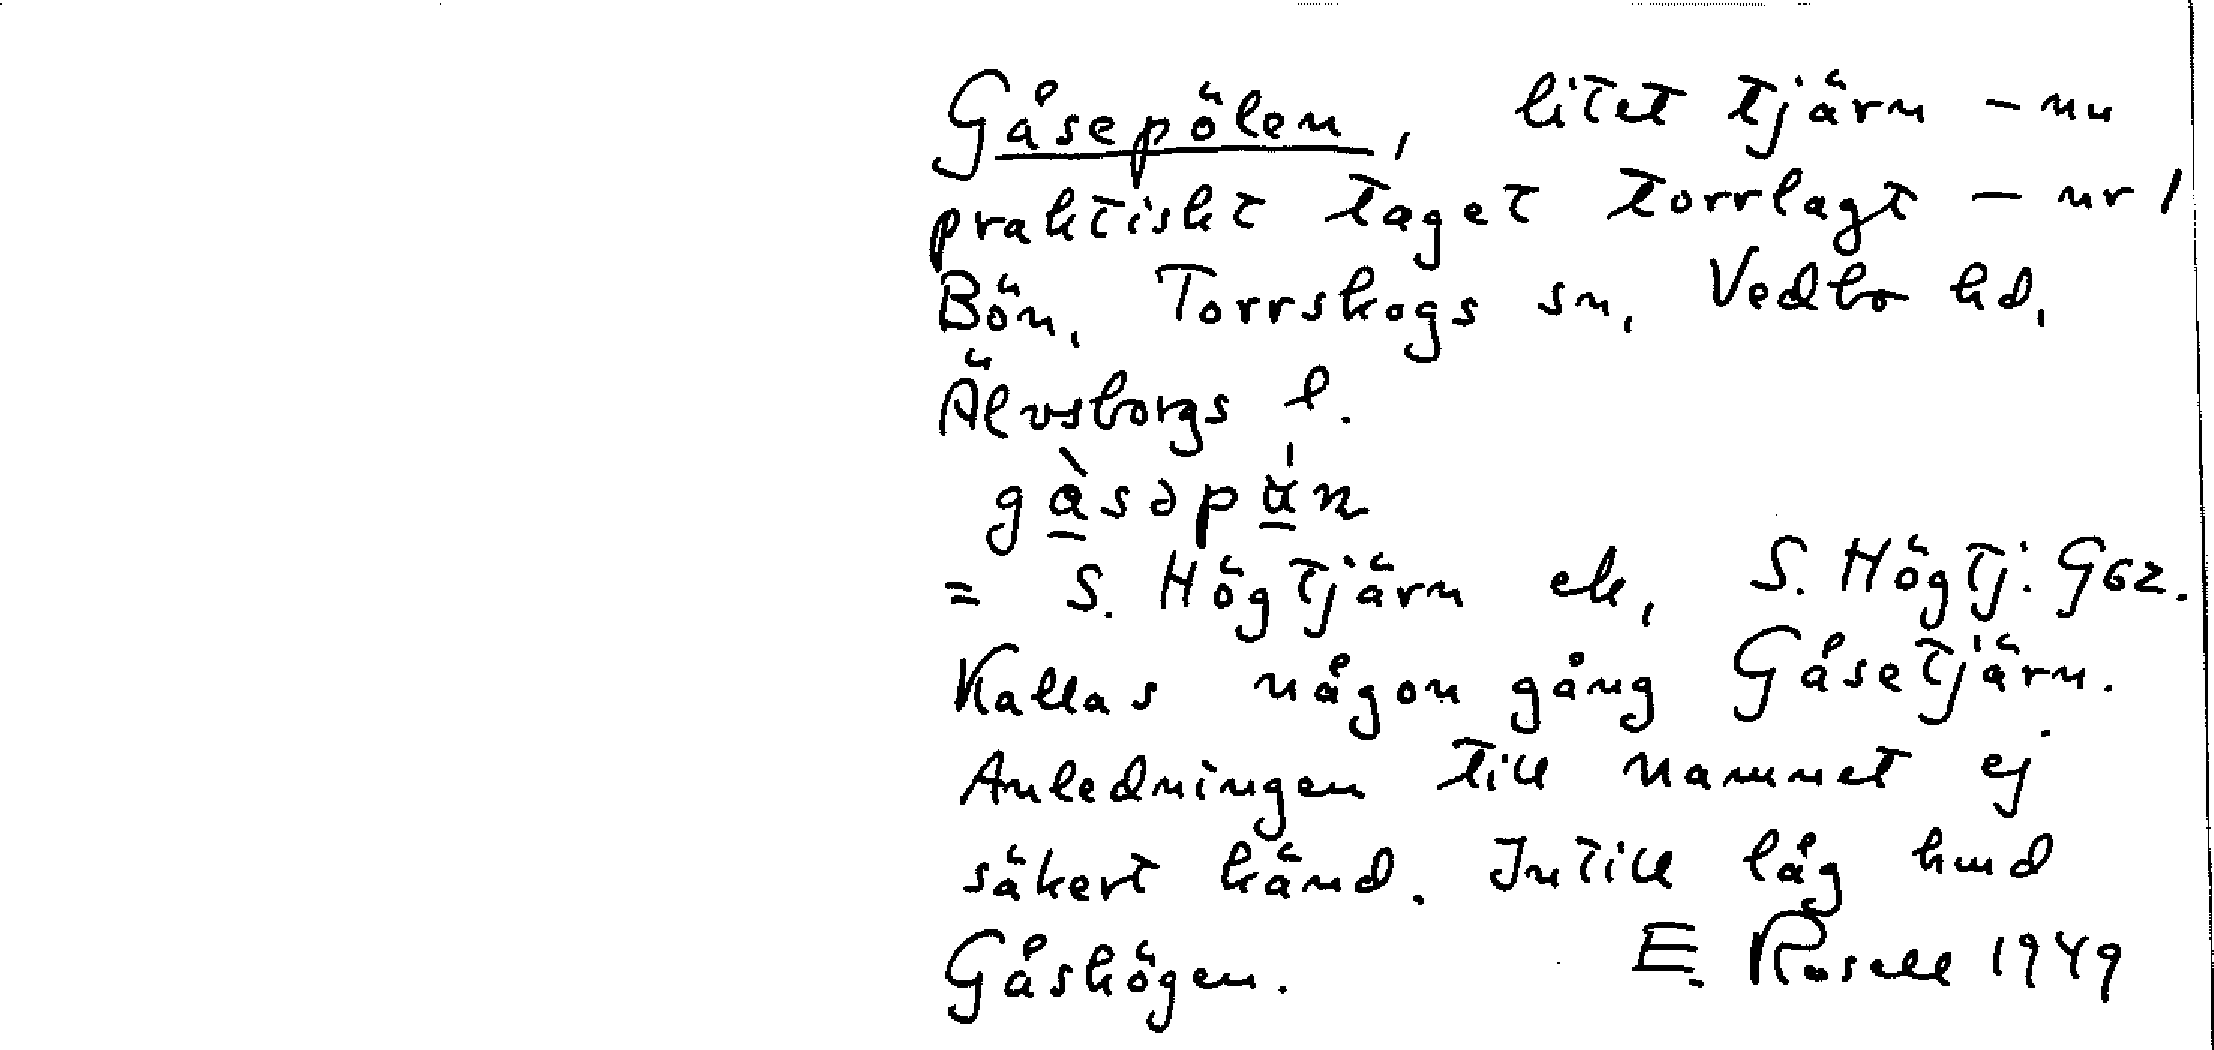 Gåsepölen, litet tjärn - nu
praktiskt taget torrlagt - nr 1
Bön, Torrskogs sn, Vedbo hd,
Älvsborgs l.
= S. Högtjärn ek, S. Högtj: G62.
Kallas någon gång Gåsetjärn.
Anledningen till namnet ej
säkert känd. Intill låg hmd
Gåshögen. E. Rosell 1949